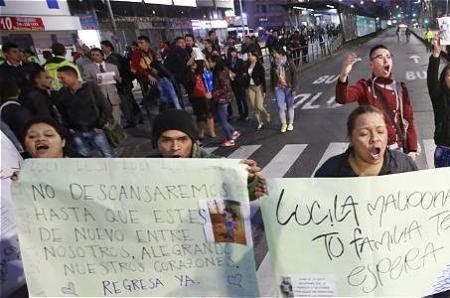 10
BUS
NO DESCANSAREMOS
HASTA QUE ESTES
DE NUEVO ENTRE
NOSOTROS, ALEGRANDO
NUESTROS CORAZONES.
REGRESA YA.
LUCILA MALDONA
TU FAMILIA TE
ESPERA